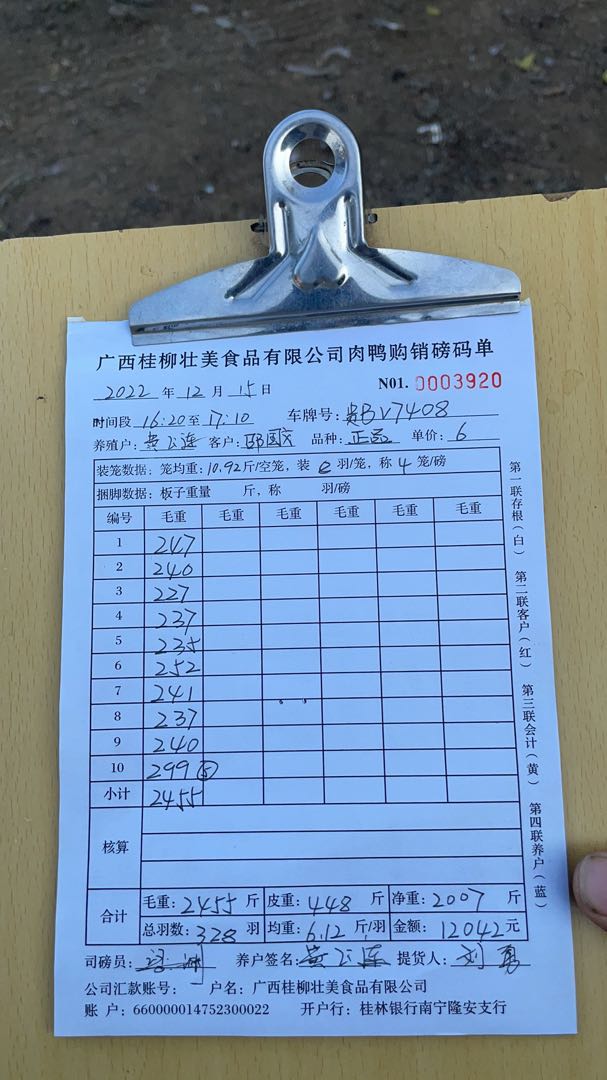 广西桂柳壮美食品有限公司肉鸭购销磅码单
2022 年 12 月 15 日 N01. 0003920
时间段 16:20 至 17:10 车牌号: 贵BV7408
养殖户: 黄 连 客户: 国 品种: 正品 单价: 6
装笼数据: 笼均重: 10.92 斤/空笼, 装 8 羽/笼, 称 4 笼/磅
捆脚数据: 板子重量 斤, 称 羽/磅
编号 毛重 毛重 毛重 毛重 毛重 毛重
1 247
2 240
3 227
4 237
5 235
6 252
7 241
8 237
9 240
10 299 ⑤
小计 2455
核算
合计 毛重: 2455 斤 皮重: 448 斤 净重: 2007 斤
总羽数: 328 羽 均重: 6.12 斤/羽 金额: 12042 元
司磅员: 养户签名: 黄 连 提货人: 刘勇
公司汇款账号: 户名: 广西桂柳壮美食品有限公司
账 户: 660000014752300022 开户行: 桂林银行南宁隆安支行
第一联存根(白) 第二联客户(红) 第三联会计(黄) 第四联养户(蓝)